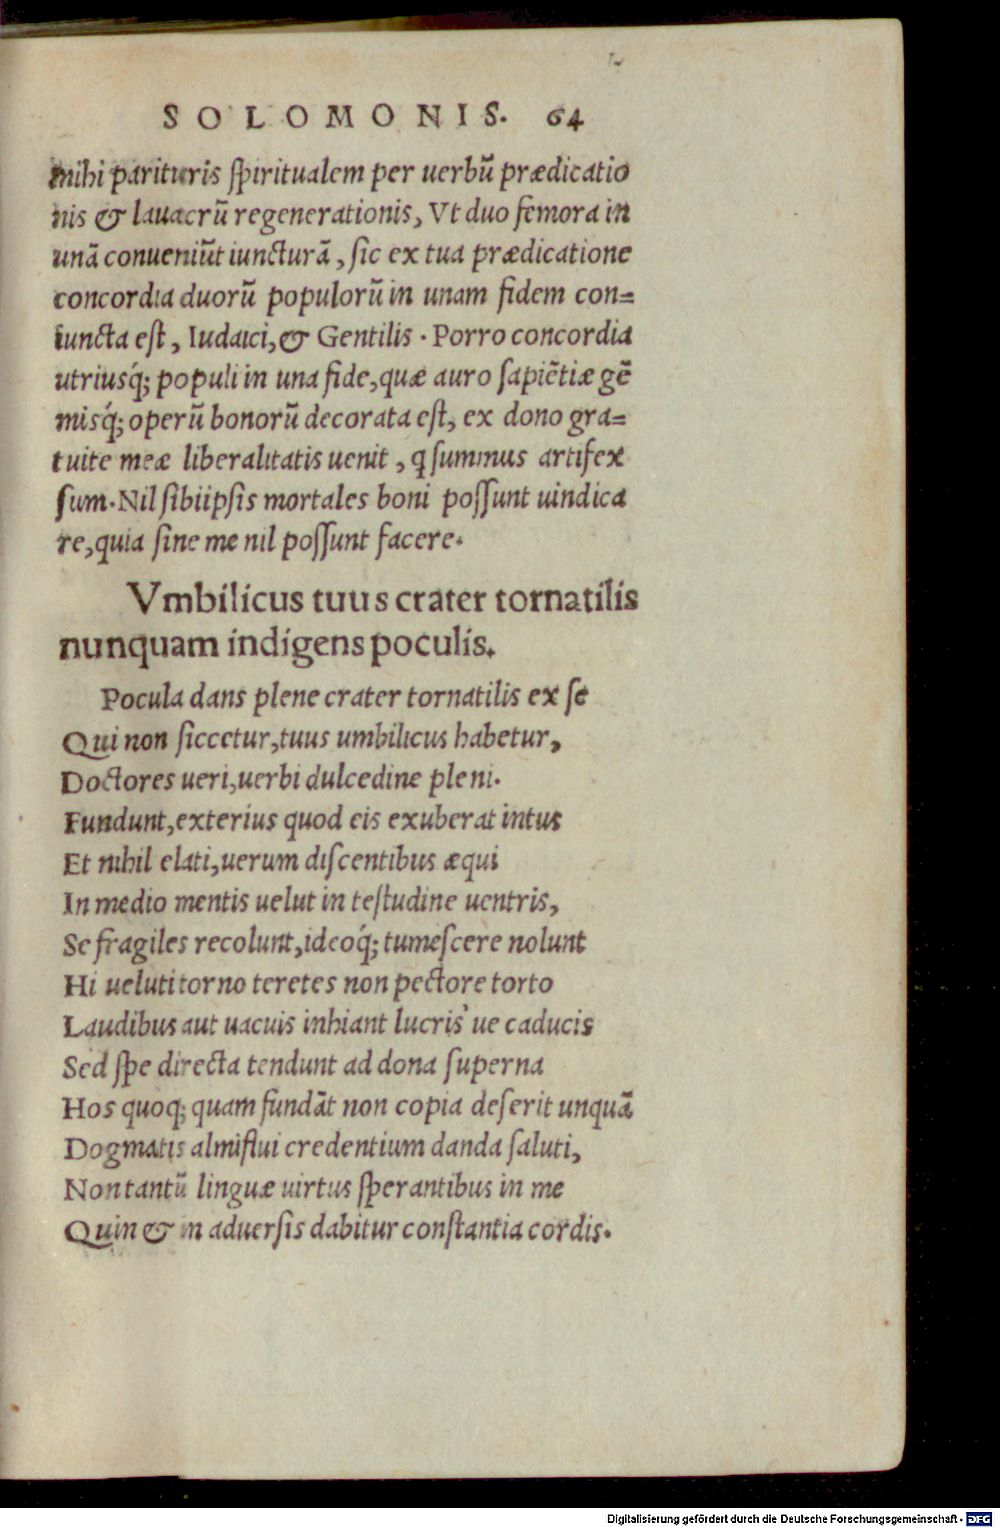 SOLOMONIS. 64
mihi parituris ſpiritualem per uerbũ prædicatio
nis & lauacrũ regenerationis, Vt duo femora in
unã conueniũt iuncturã, ſic ex tua prædicatione
concordia duorũ populorũ in unam fidem con=
iuncta eſt, Iudaici, & Gentilis. Porro concordia
utriusq́; populi in una fide, quæ auro ſapiẽtiæ gẽ
misq́; operũ bonorũ decorata eſt, ex dono gra=
tuite meæ liberalitatis uenit, q ſummus artifex
ſum. Nil ſibiipſis mortales boni poſſunt uindica
re, quia ſine me nil poſſunt facere.
Vmbilicus tuus crater tornatilis
nunquam indigens poculis.
Pocula dans plene crater tornatilis ex ſe
Qui non ſiccetur, tuus umbilicus habetur,
Doctores ueri, uerbi dulcedine pleni.
Fundunt, exterius quod eis exuberat intus
Et nihil elati, uerum diſcentibus æqui
In medio mentis uelut in teſtudine uentris,
Se fragiles recolunt, ideoq́; tumeſcere nolunt
Hi ueluti torno teretes non pectore torto
Laudibus aut uacuis inhiant lucris ue caducis
Sed ſpe directa tendunt ad dona ſuperna
Hos quoq; quam fundãt non copia deſerit unquã
Dogmatis almiflui credentium danda ſaluti,
Non tantũ linguæ uirtus ſperantibus in me
Quin & in aduerſis dabitur conſtantia cordis.
Digitalisierung gefördert durch die Deutsche Forschungsgemeinschaft - DFG